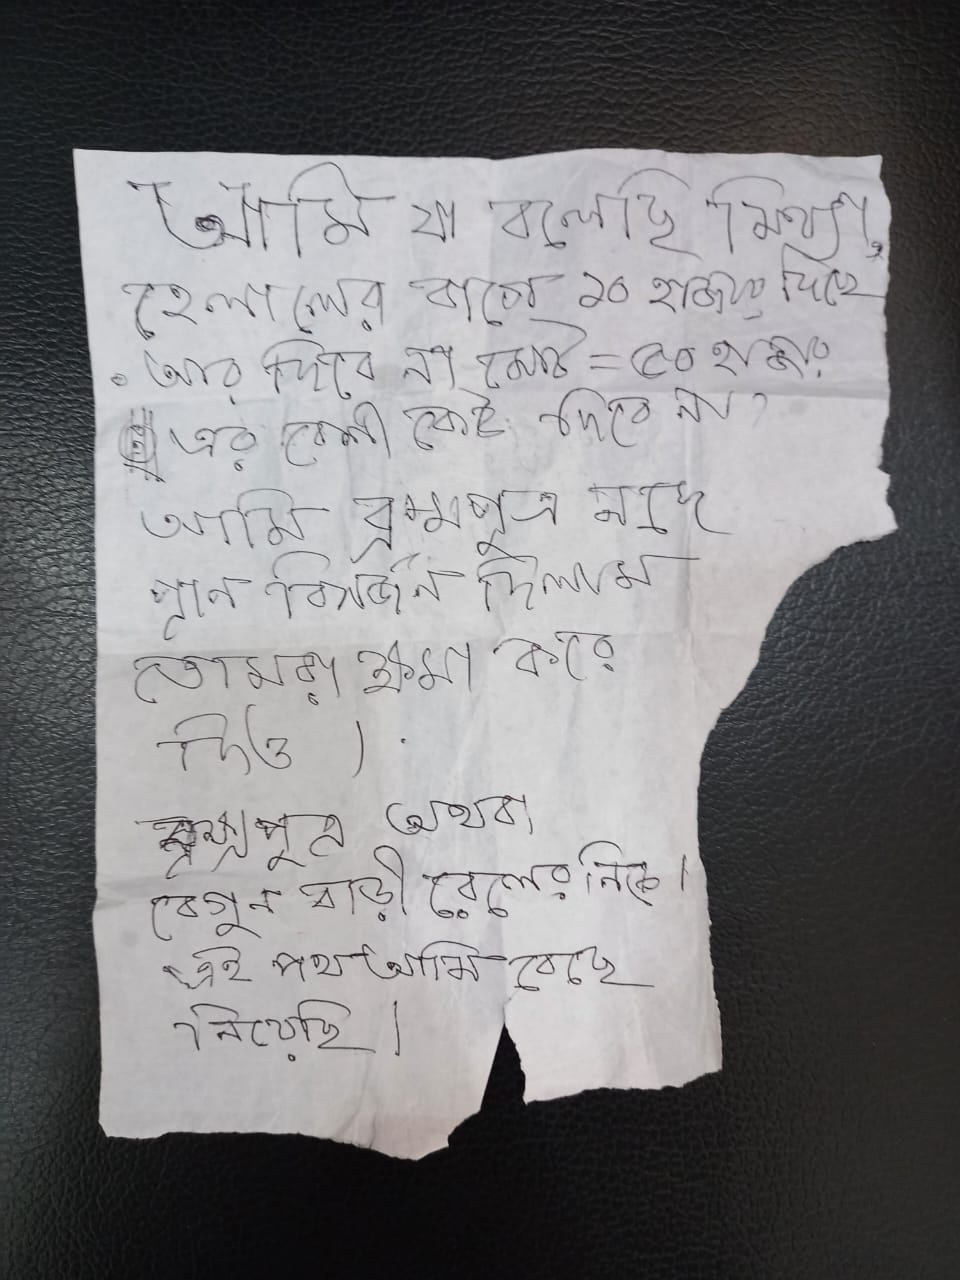 আমি যা বলেছি মিথ্যা,
হেলালের কাছে ১০ হাজার দিছে
আর দিবে না মোট = ৫০ হাজার
এর বেশী কেউ দিবে না?
আমি ব্রম্মপুত্র মদ্দে
প্রান বিসর্জন দিলাম
তোমরা ক্ষমা করে
দিও।
ব্রম্মপুত্র অথবা
বেগুন বাড়ী রেলের নিচে।
এই পথ আমি বেছে
নিয়েছি।